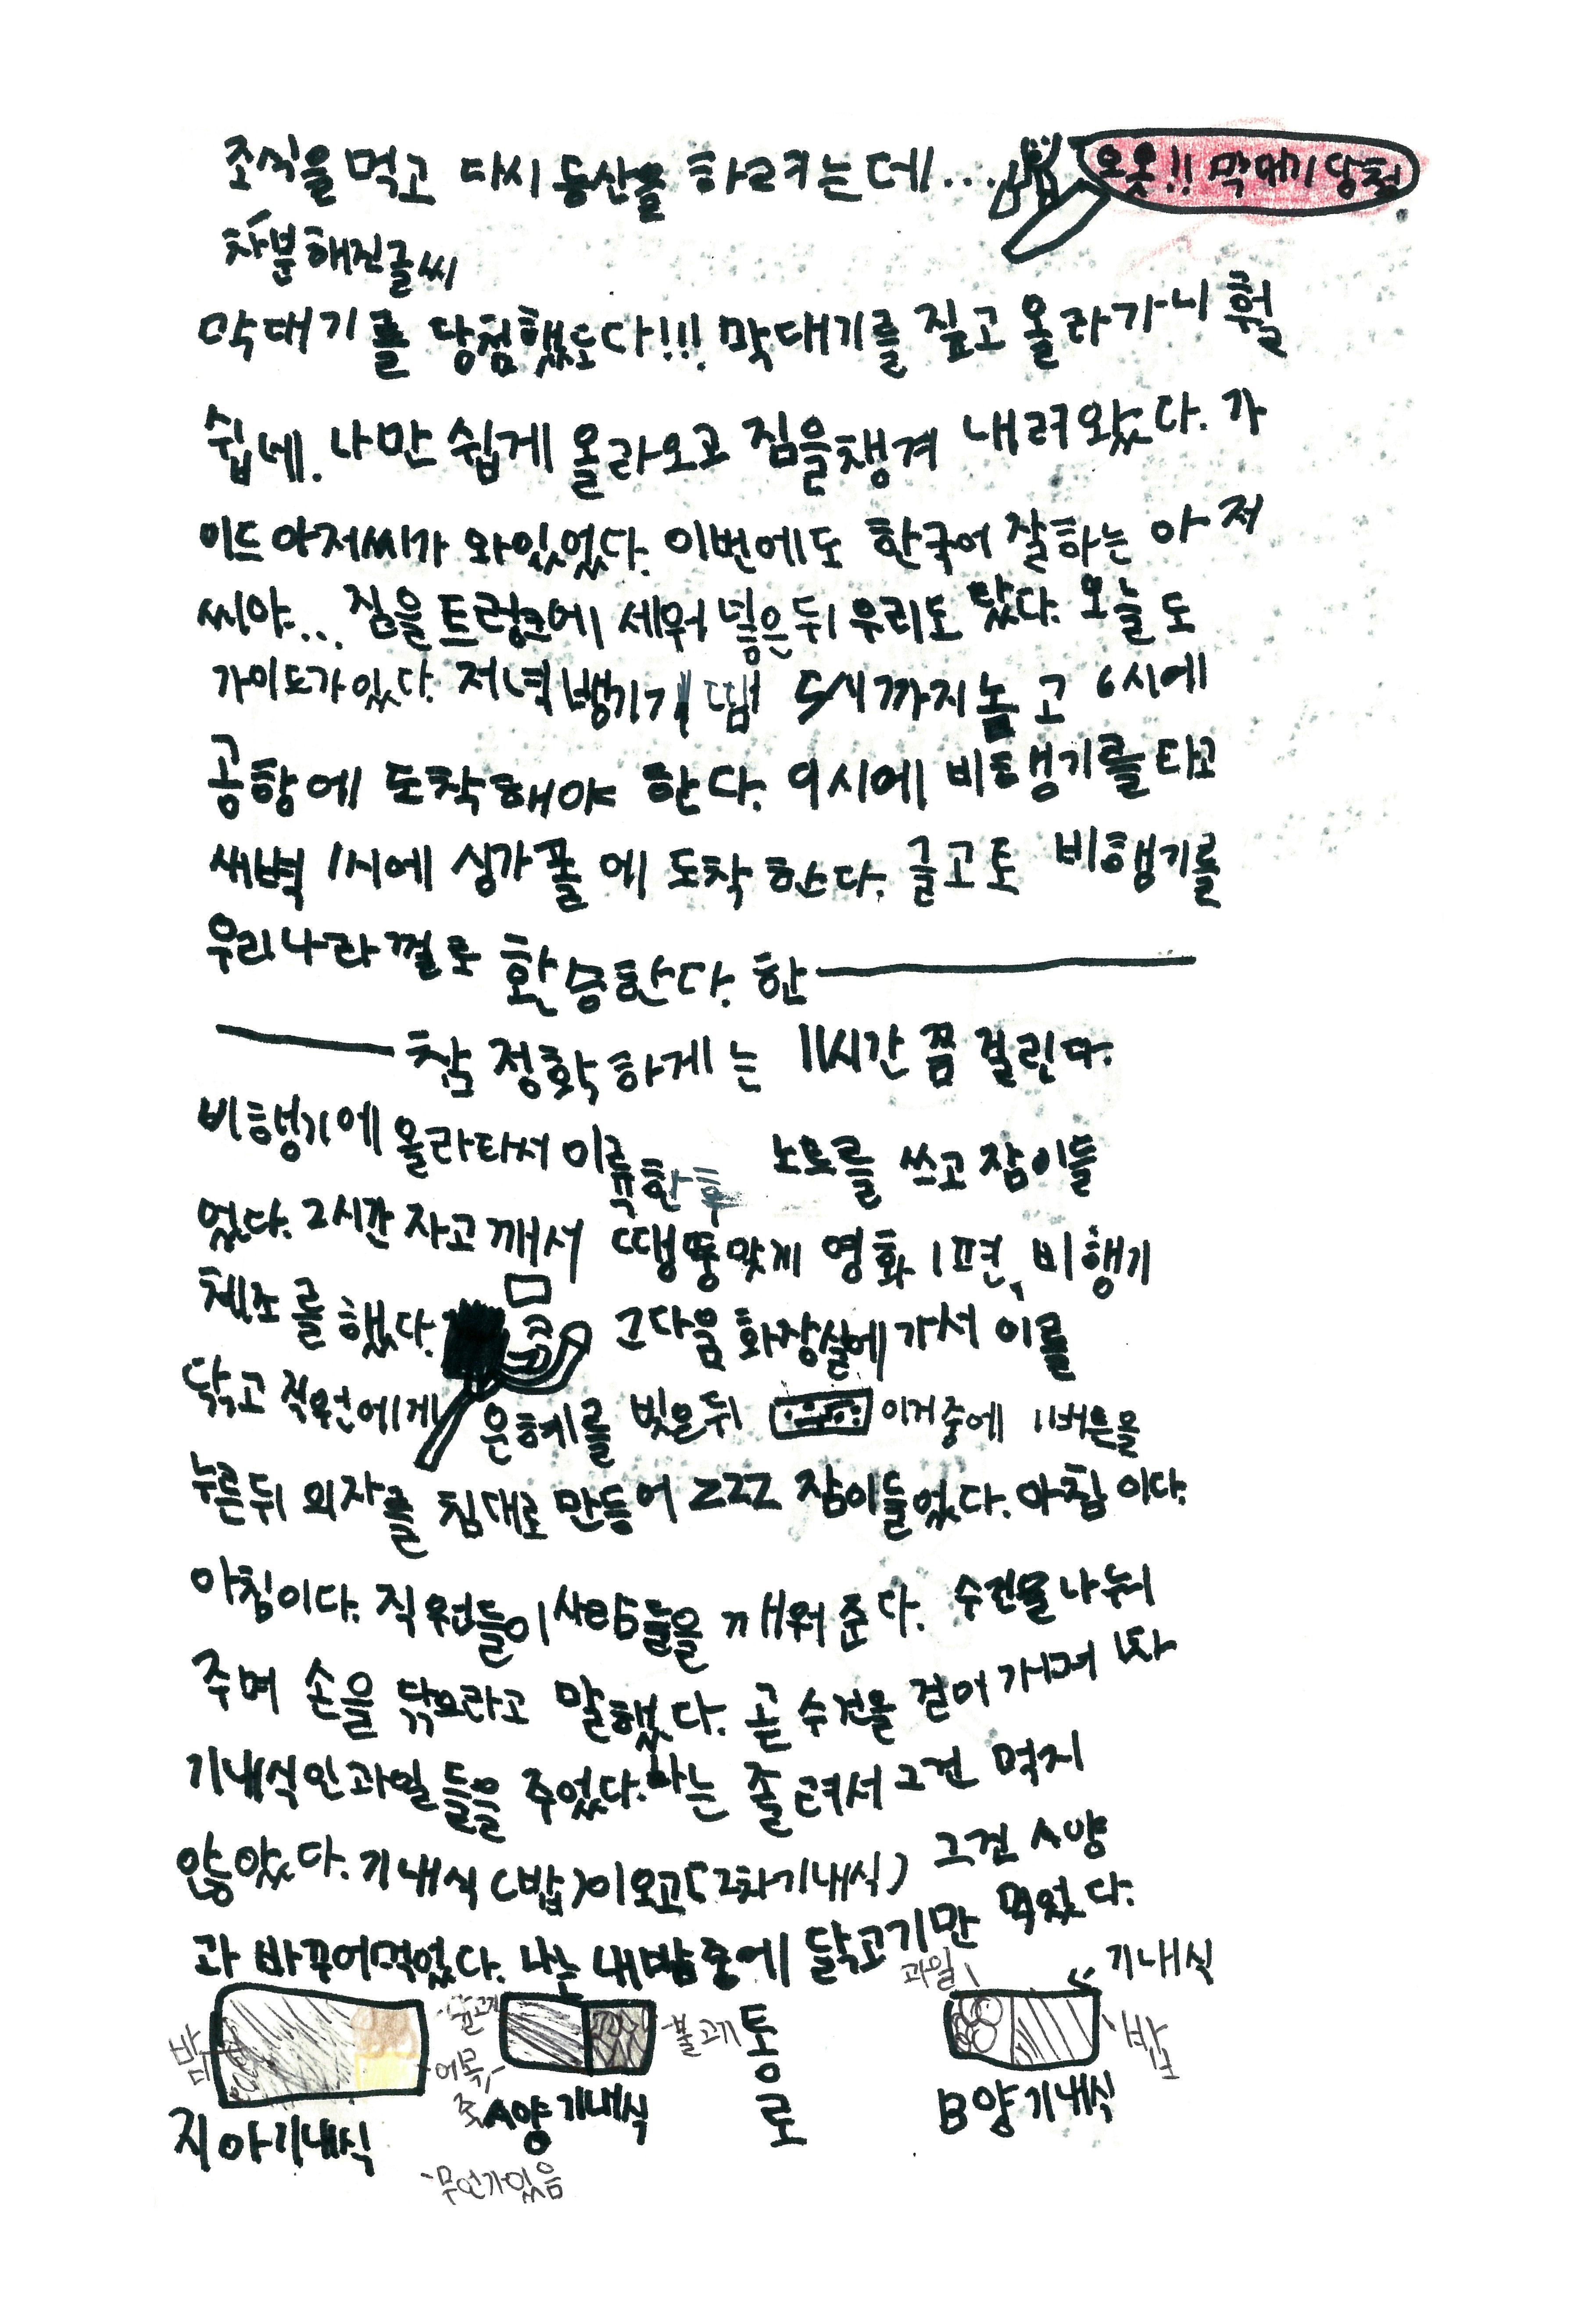 조식을 먹고 다시 등산을 하러가는데...
오옷!! 막대기 당첨
차분해진글씨
막대기를 당첨했도다!!! 막대기를 짚고 올라가니 훨
쉽네. 나만 쉽게 올라오고 짐을챙겨 내려왔다. 가
이드아저씨가 와있었다. 이번에도 한국어 잘하는 아저
씨야... 짐을 트렁크에 세워 넣은뒤 우리도 탔다. 오늘도
가이드가있다. 저녁 5시까지 놀고 6시에
공항에 도착해야 한다. 9시에 비행기를 타고
새벽 1시에 싱가폴에 도착한다. 글고 또 비행기를
우리나라껄로 환승한다. 한
참 정확하게는 11시간 쯤 걸린다.
비행기에 올라타서 이륙한후 노트를 쓰고 잠이들
었다. 2시간 자고 깨서 땡뚱맞게 영화 1편, 비행기
체조를 했다. 그다음 화장실에 가서 이를
닦고 직원에게 은혜를 빚은뒤 이거중에 11버튼을
누른뒤 의자를 침대로 만들어 zzz 잠이들었다. 아침이다.
아침이다. 직원들이 사람들을 깨워 준다. 수건을 나눠
주며 손을 닦으라고 말했다. 곧 수건을 걷어가며 1차
기내식인 과일들을 주었다. 나는 졸려서 그건 먹지
않았다. 기내식(밥)이오고(2차기내식) 그건 A양
과 바꾸어먹었다. 나는 내밥중에 닭고기만 먹었다.
과일
기내식
밥
불고기
통로
밥
어묵
지아기내식
A양기내식
B양기내식
무언가있음